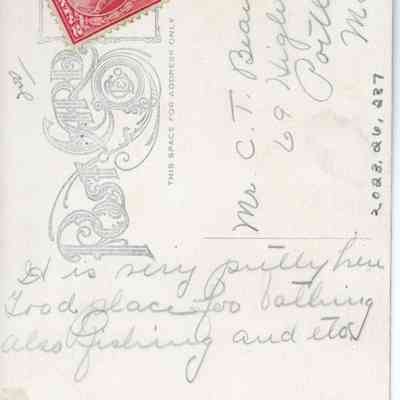 Post Card
THIS SPACE FOR ADDRESS ONLY
Mr C. T. Bea
69 Hig
Portl
M
2023.26.237
It is very pritty here
Good place for bathing
also fishing and etc